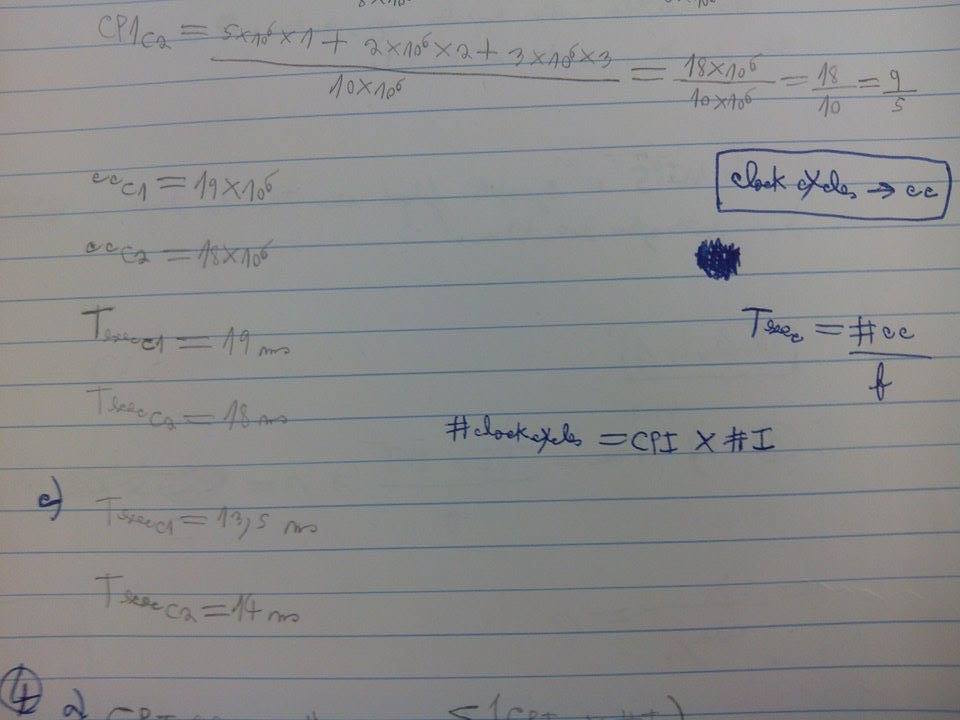 CPI_C2 = 5×10⁶×1 + 2×10⁶×2 + 3×10⁶×3 / 10×10⁶ = 18×10⁶ / 10×10⁶ = 18/10 = 9/5
cc_C1 = 19×10⁶
clock cycles → cc
cc_C2 = 18×10⁶
Texec_C1 = 19 ms
Texec = #cc / f
Texec_C2 = 18 ms
#clock cycles = CPI × #I
c)
Texec_C1 = 13,5 ms
Texec_C2 = 14 ms
4 a)